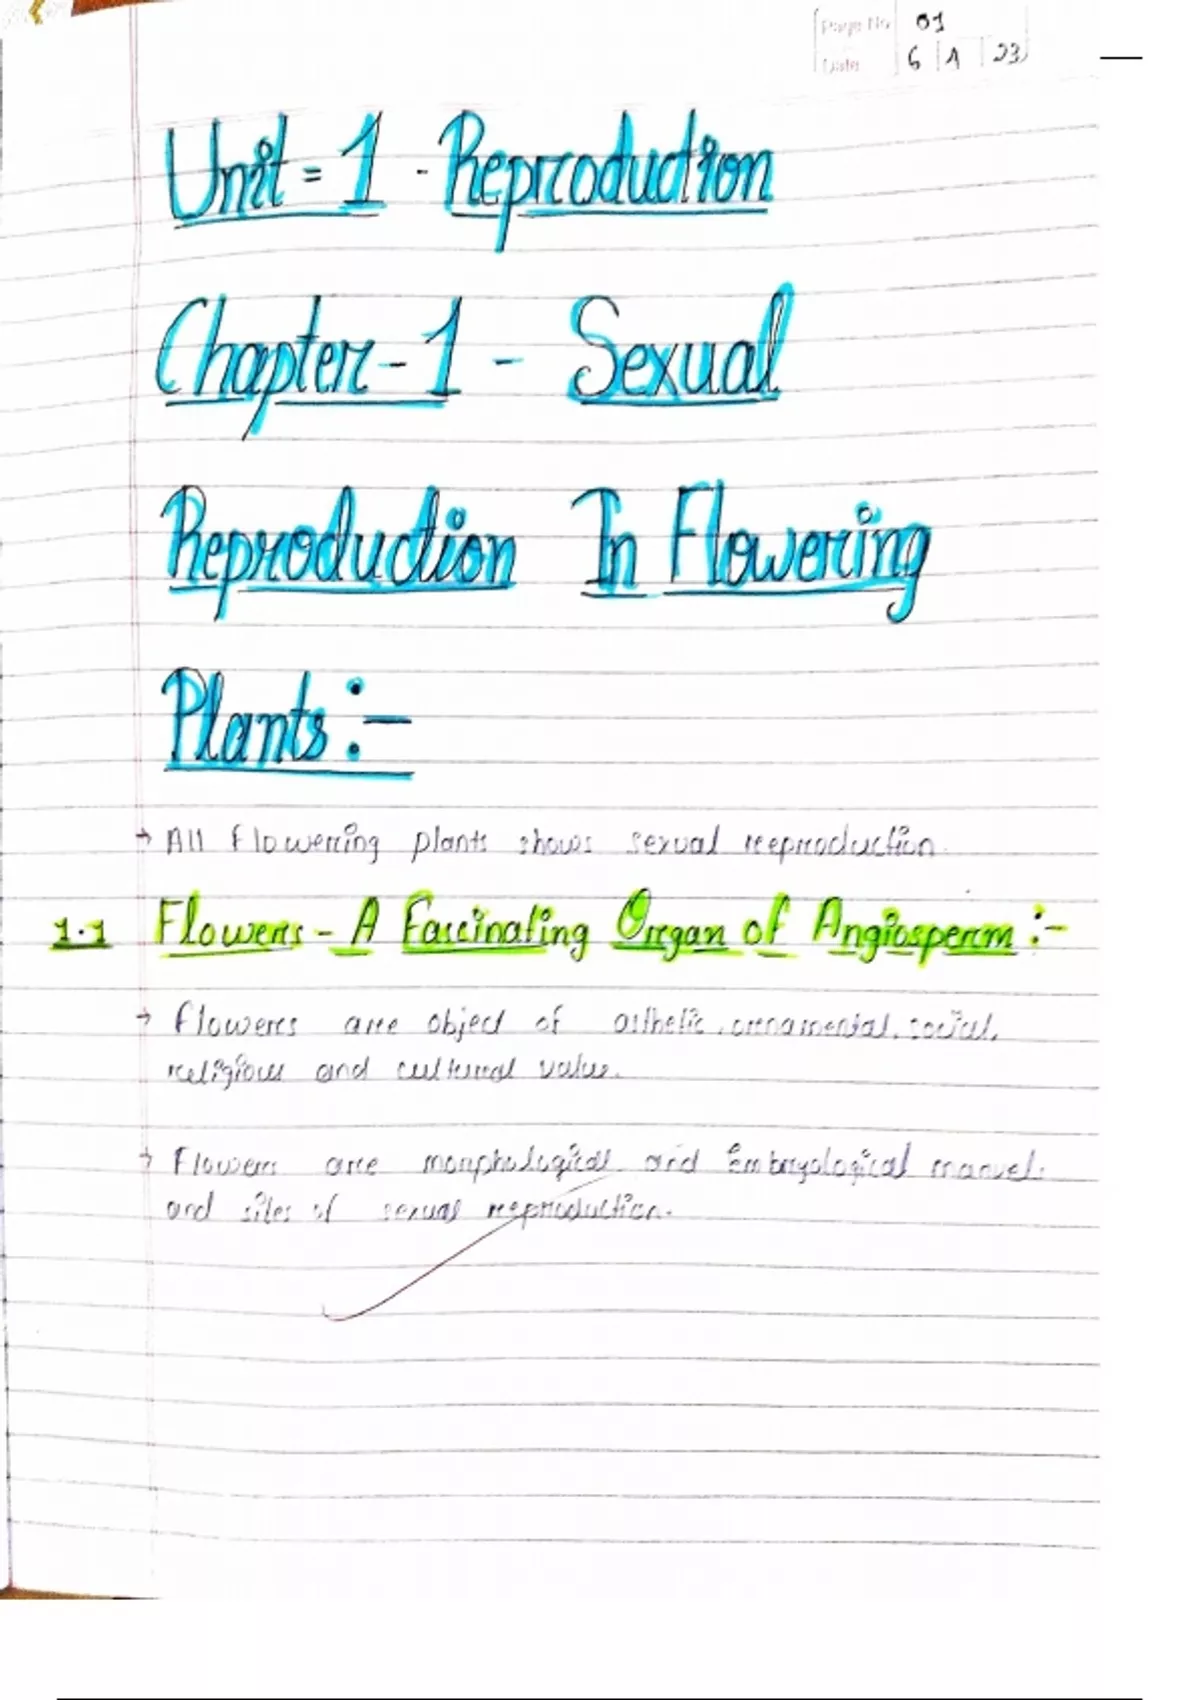 Page No 01
Date 6 1 23
Unit = 1 - Reproduction
Chapter - 1 - Sexual
Reproduction In Flowering
Plants :-
→ All flowering plants shows sexual reproduction.
1.1 Flowers - A Fascinating Organ of Angiosperm :-
→ Flowers are object of asthetic, ornamental, social,
religious and cultural value.
→ Flowers are morphological and Embryological marvel
and sites of sexual reproduction.